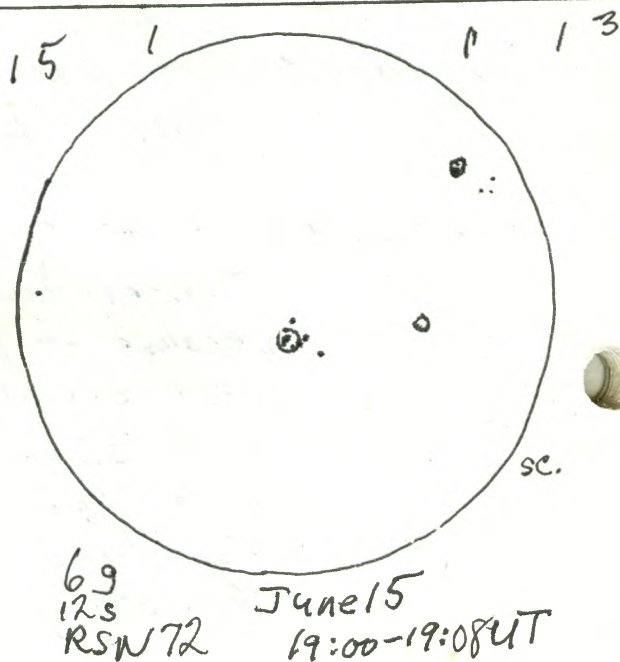 15 1 1 1 3
sc.
6g
12s
RSN 72
June 15
19:00-19:08 UT